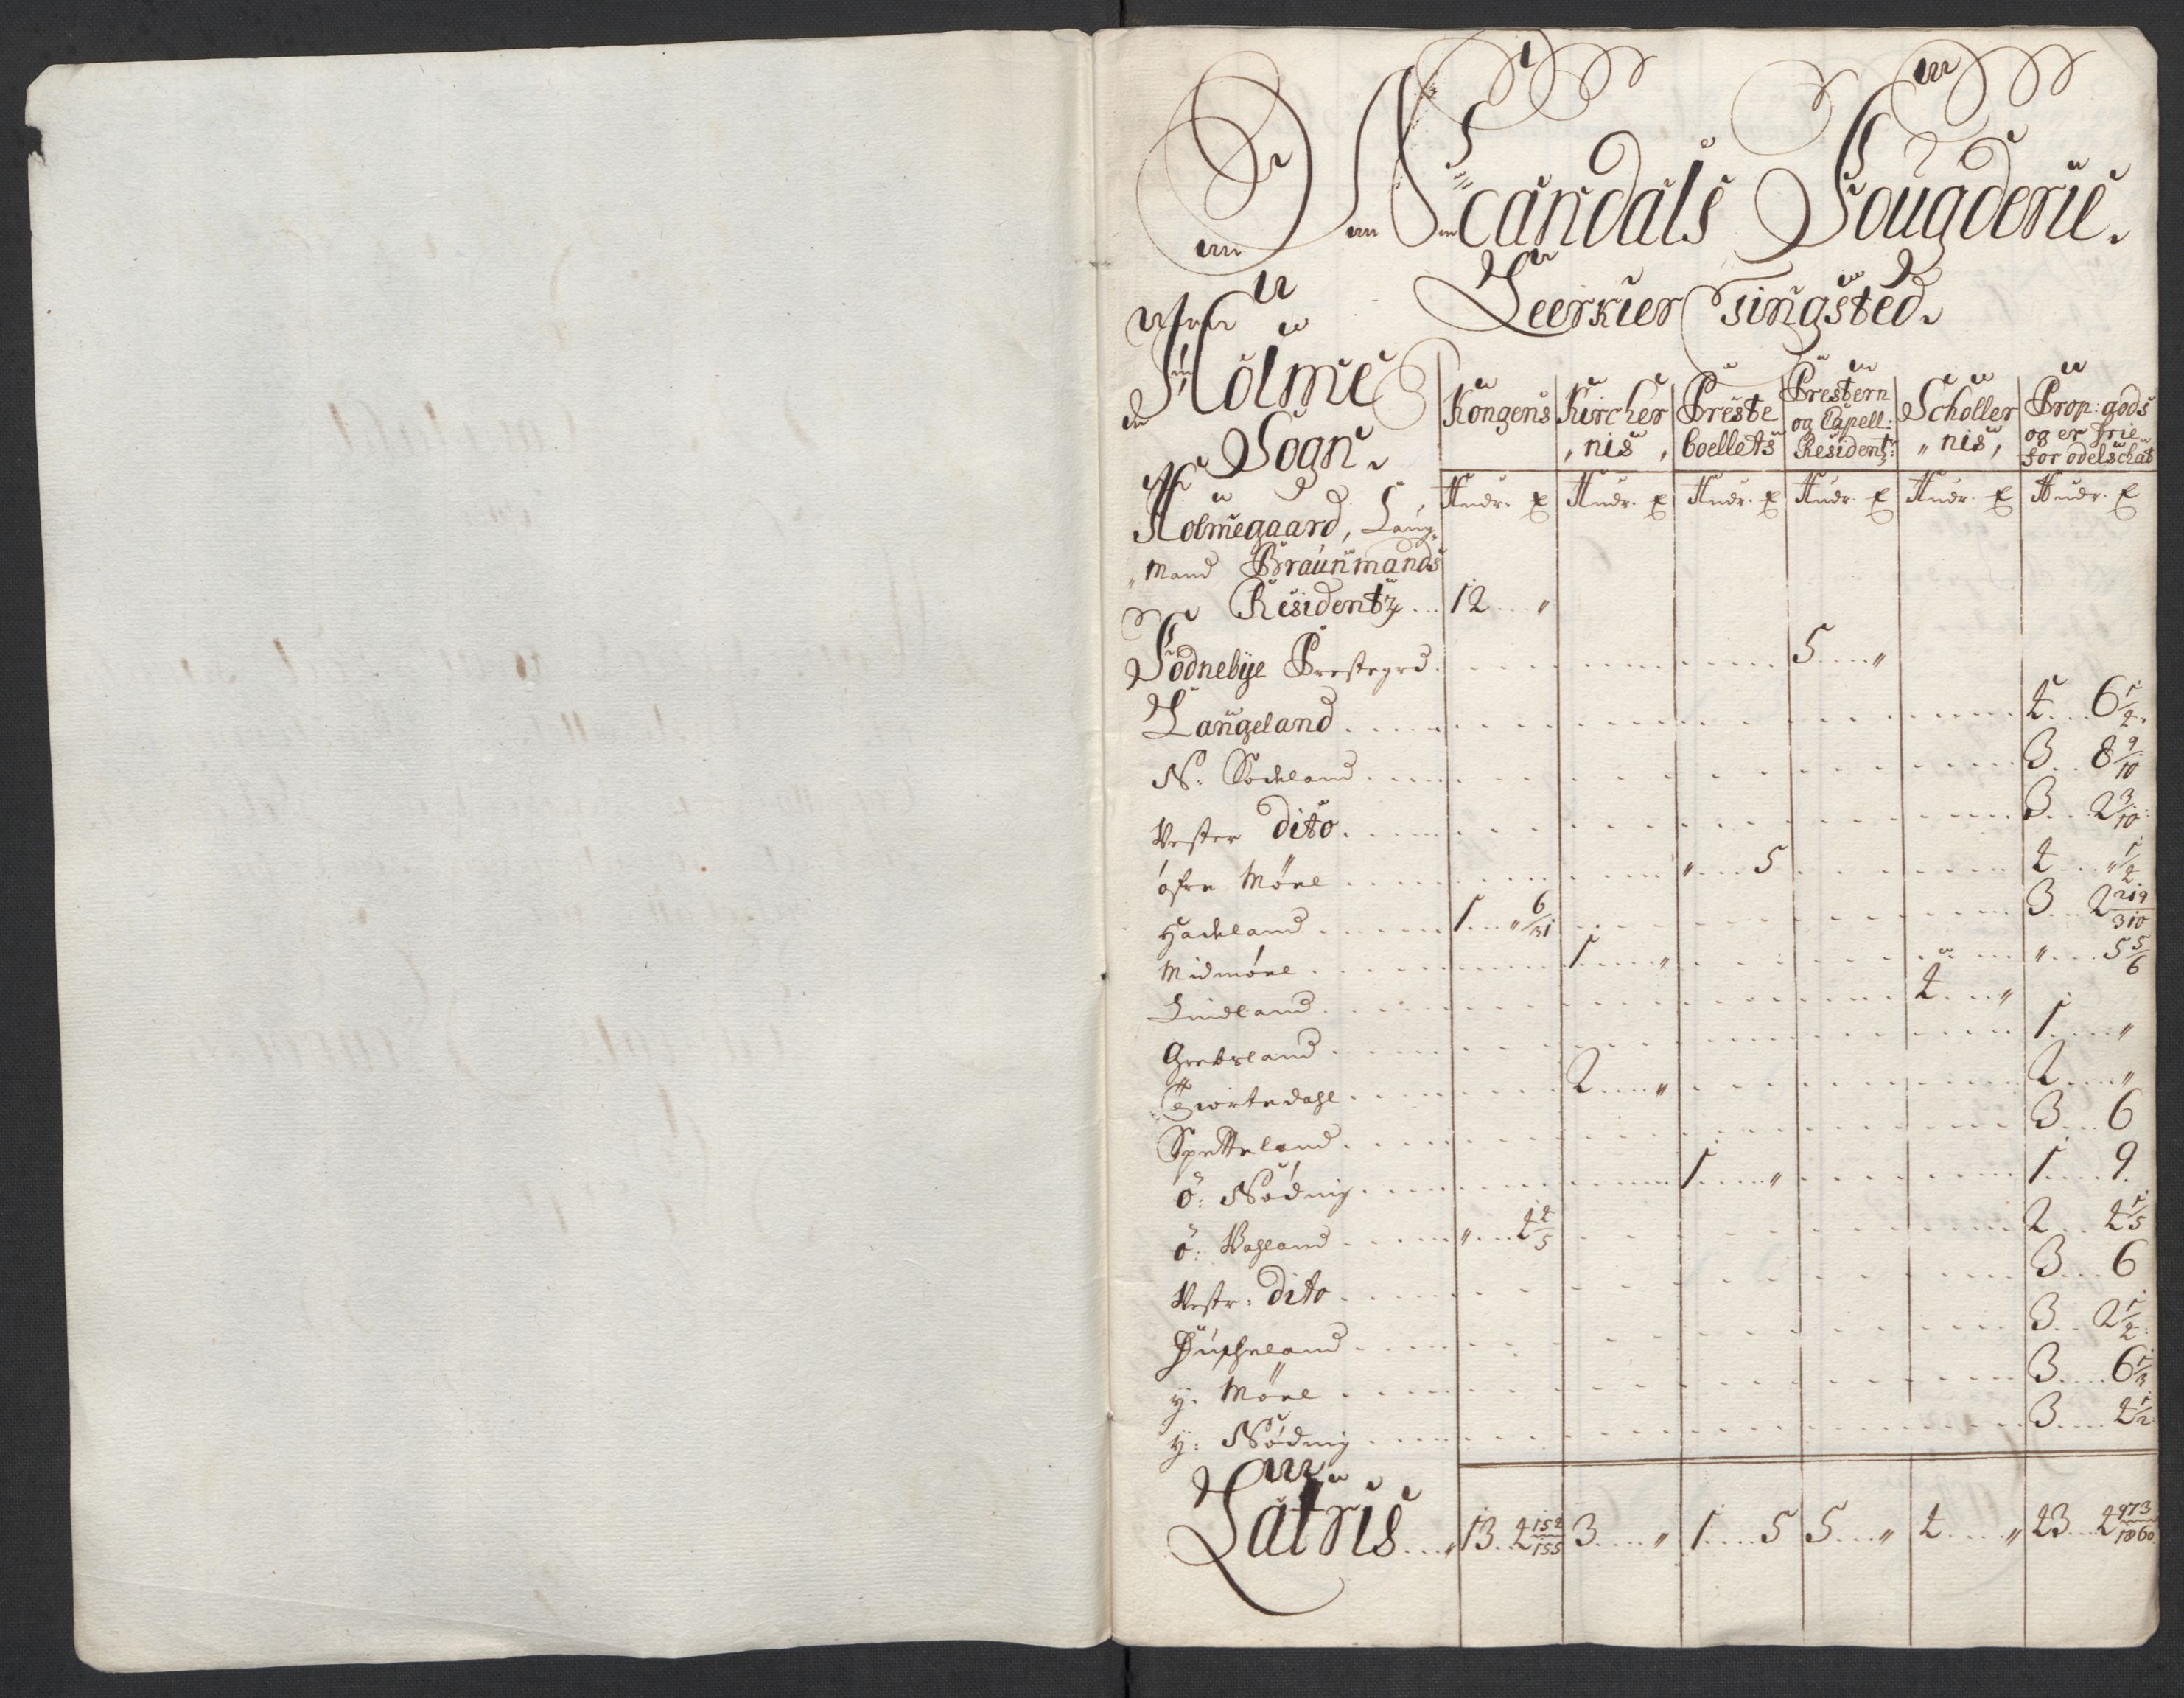 Mandals Fougderie.
Leerkier Tingsted.
Holme
Sogn.
Kongens | Kircher „nis, | Preste boellets | Prestern og Capell: Residentz: | Scholler „nis, | Prop: gods og er frie for odelschat
Hudr. | Hudr. | Hudr. | Hudr. | Hudr. | Hudr.
Holmegaard, Laug„
„Mand Braunmands
Residentz... 12... „
Södnebÿe Prestegrd. 5....„
Langeland.... 2... 6 1/2.
N: Södeland.... 3.. 8 9/10
Vester dito.... 3... 2 3/10:
öfre Möne.... „...5 2....„ 1/2
Hadeland.... 1...„ 6/31 3... 2 219/310
Midmöne.... 1....„ „... 5 5/6
Lindland.... 2...„
Grebsland.... 1....„
Hiortedahl.... 2....„ 2....„
Spetteland.... 3... 6
ö: Nödnig.... 1....„ 1.... 9.
ö: Vahland.... „...2 2/5 2... 2 1/5
Vestr: dito.... 3... 6
.... 3.. 2 1/2:
ÿ: Möne.... 3.... 6 1/3
ÿ: Nödnig.... 3.... 2 1/2
Latris...„ 13.. 2 152/155 3....„ 1....5 5...„ 2....„ 43... 2 973/1860